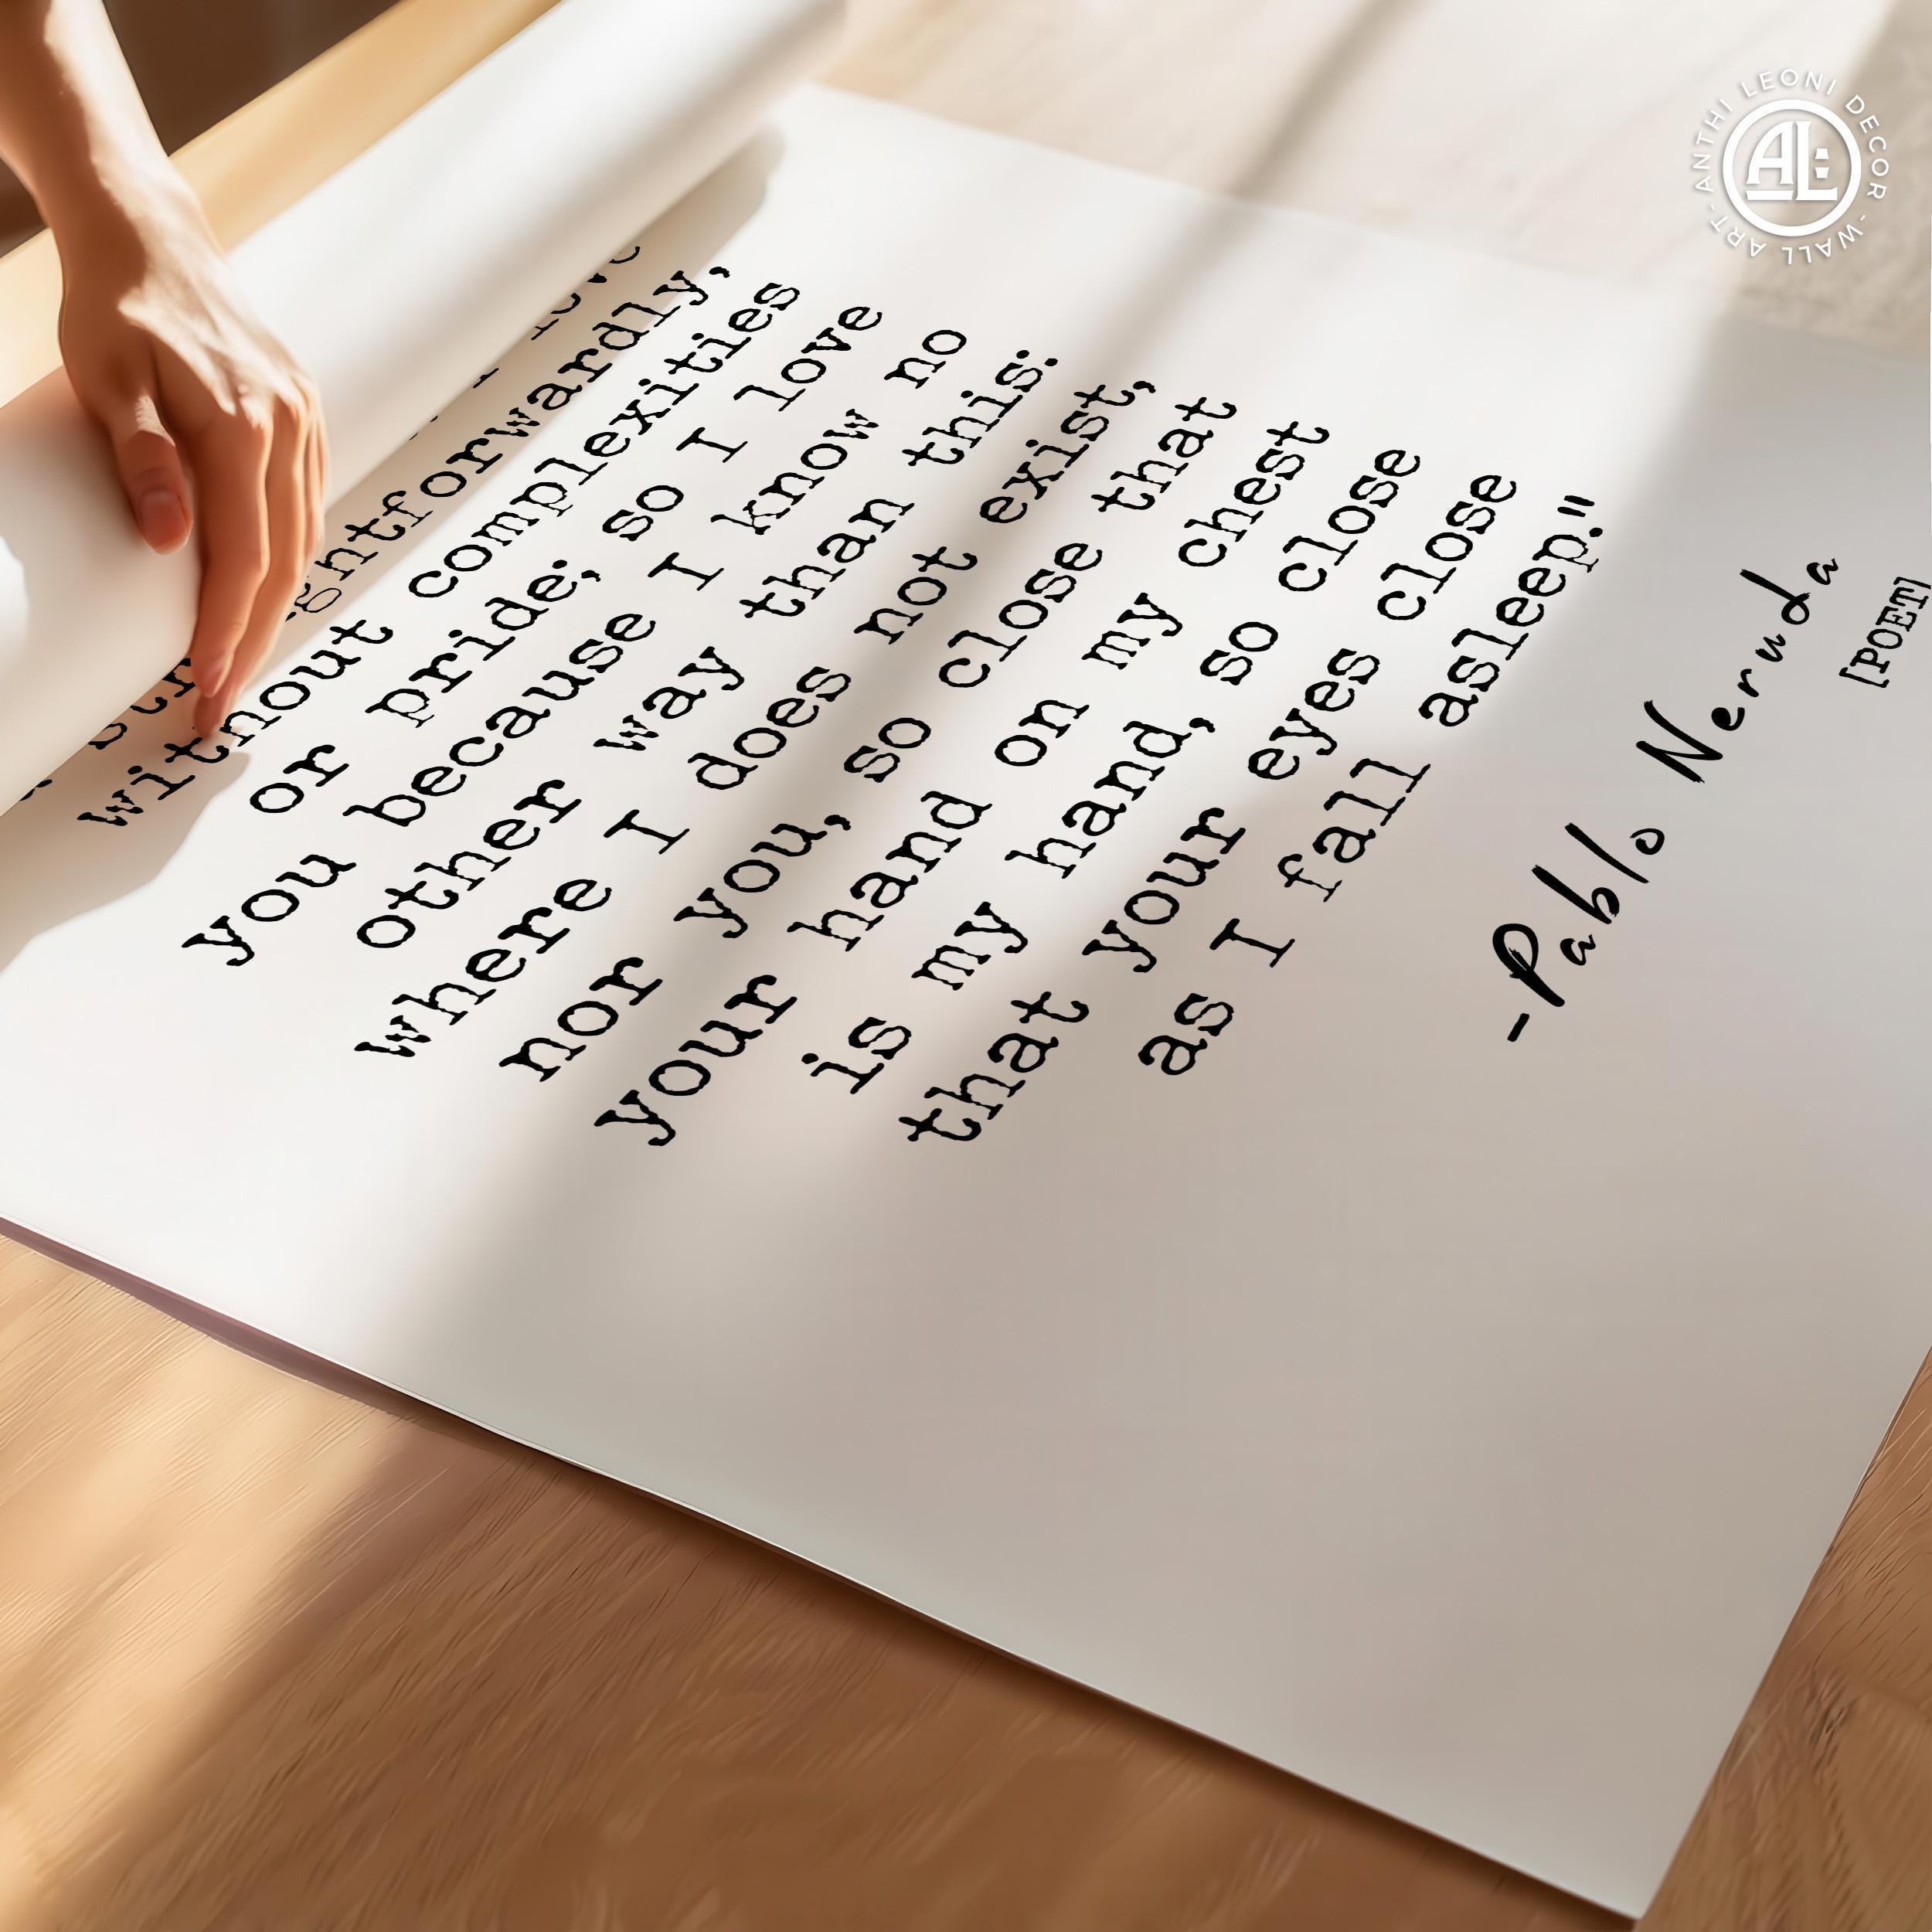 love
straightforwardly,
without complexities
or pride; so I love
you because I know no
other way than this:
where I does not exist,
nor you, so close that
your hand on my chest
is my hand, so close
that your eyes close
as I fall asleep."
-Pablo Neruda
[POET]
ANTHI LEONI DECOR - WALL ART -
AL